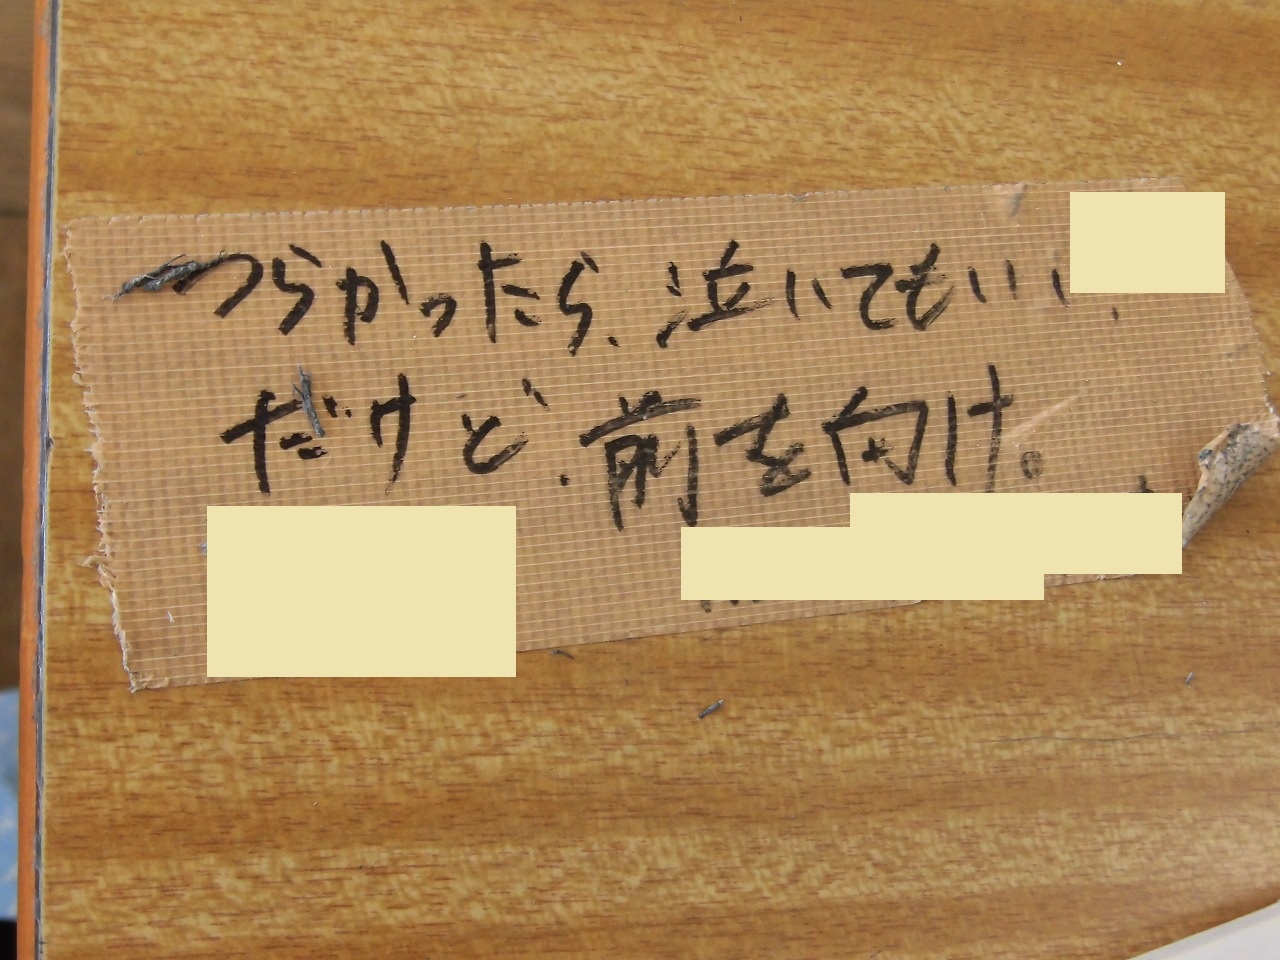 つらかったら、泣いてもいい
だけど、前を向け。